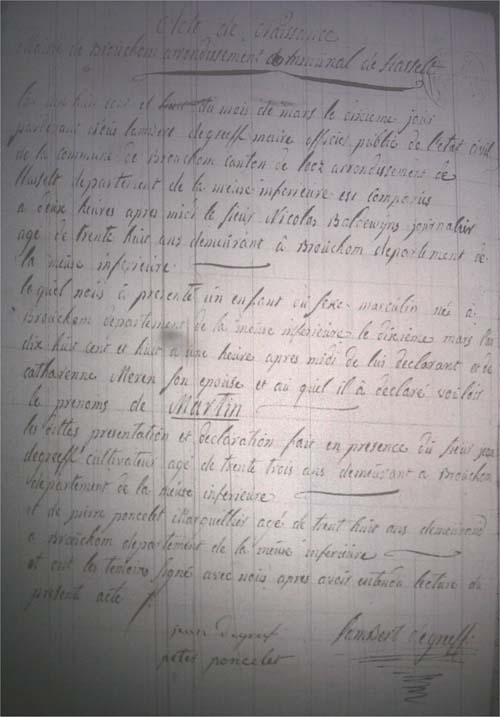 Acte de naissance
Mairie de Brouchom arrondissement communal de Hasselt
L'an dix huit cent et huit du mois de mars le dixieme jour
pardevant nous lambert degreeff maire officier public de l'état civil
de la commune de Brouchom canton de looz arrondissement de
Hasselt departement de la meuse inferieure est comparus
a deux heures apres midi le sieur Nicolas Baldewyns journalier
agé de trente huit ans demeurant à Brouchom departement de
la meuse inferieure
lequel nous à presenté un enfant du sexe masculin né à
Brouchom departement de la meuse inferieure le dixième mars l'an
dix huit cent et huit a une heure apres midi de lui declarant et de
catharenne Meren son epouse et au quel il à declaré vouloir
le prenoms de Martin
les dittes presentation et declaration fait en presence du sieur jean
degreeff cultivateur agé de trente trois ans demeurant a Brouchom
departement de la meuse inferieure
et de pierre poncelet Marguellier agé de trent huit ans demeurand
a Brouchom departement de la meuse inferieure
et ont les temoins signé avec nous apres avoir entendu lecture du
presente acte
jean degreef lambert degreeff
peter poncelet